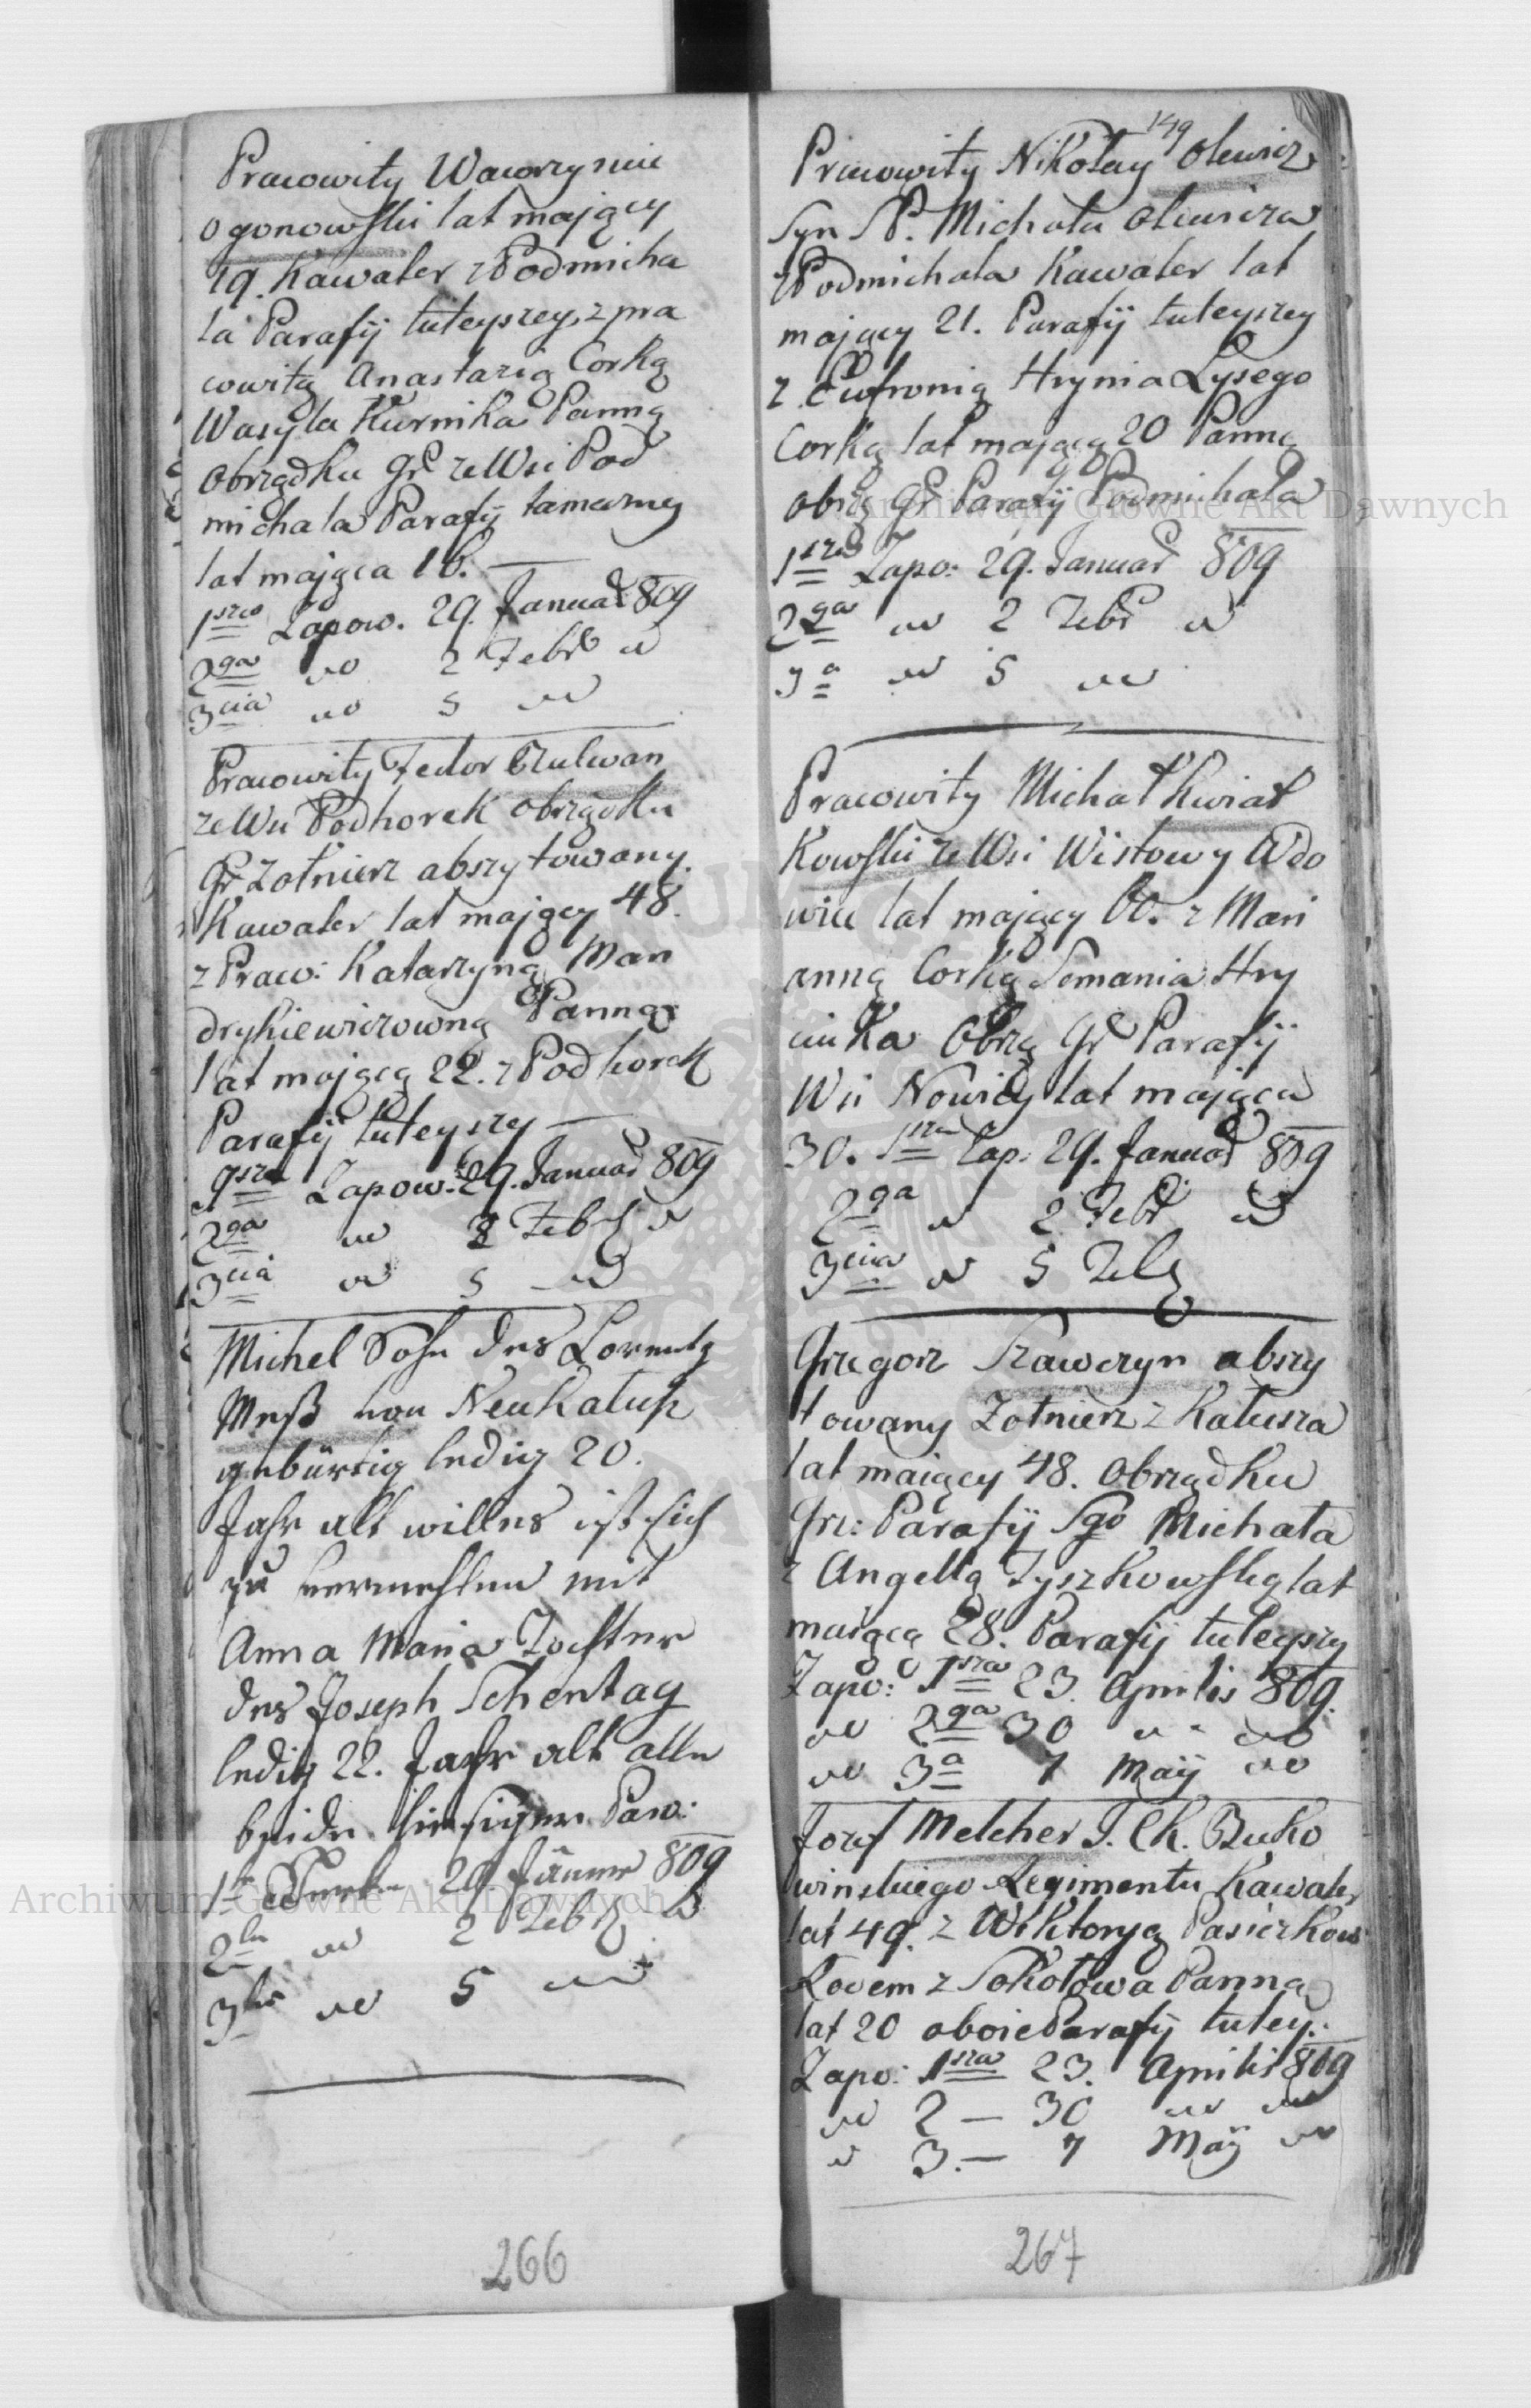 Pracowity Wawrzyniec
ogonowski lat mający
19. Kawaler z Podmicha
la Parafij tuteyszey, z pra
cowitą Anastazią Corką
Wasyla Kurnika Panną
obrządku Gr ze Wsi Pod
michala Parafij tameczney
lat mająca 16.
1sza Zapow. 29. Januar 809
2ga 2 Febr
3cia 5
Pracowity Fedor
ze Wsi Podhorek obrządku
Gr Zołnierz abszytowany
Kawaler lat mający 48.
z Praw: Katarzyną Man
drykiewiczowną Panną
lat mającą 22. z Podhorek
Parafij tuteyszey
1sza Zapow: 29. Januar 809
2ga 2 Febr
3cia 5
Michel Sohn des Lorentz
Meß von Neukalusz
gebürtig ledig 20.
Jahr alt willens ist sich
zu vermehlen mit
Anna Maria Tochter
des Joseph Schentag
ledig 22. Jahr alt alle
beide hiesiger
1te 29 Jänner 809
2te 2 Feb
3te 5
266
149
Pracowity Nikołay Olewicz
Syn SP. Michała Olewicza
z Podmichala Kawaler lat
mający 21. Parafij tuteyszey
z Eufronią Hrynia Łysego
Corką lat mającą 20 Panną
obrzą Gr Parafij Podmichala
1sza Zapo: 29. Januar 809
2ga 2 Febr
3a 5
Pracowity Michał Kwiat
Kowski ze Wsi Wistowy Wdo
wiec lat mający 60. z Mari
anną Corką Semania Hry
ciuka Obrzą Gr Parafij
Wsi Nowicy lat mająca
30. 1sza Zap: 29. Januar 809
2ga 2 Febr
3cia 5 Feb
Grzegorz Szawczyn abszy
towany Zołnierz z Kałusza
lat maiący 48. obrządku
Grec: Parafij Sgo Michała
z Angellą Tyszkowską lat
maiącą 28. Parafij tuteyszy
Zapo: 1sza 23. Aprilis 809.
2ga 30
3a 7 Maij
Jozef Melcher J. Ck. Buko
winskiego Regimentu Kawaler
lat 49. z Wiktoryą Pasiczkow
z Sokołowa Panną
lat 20 oboie Parafij tutey:
Zapo: 1sza 23. Aprilis 809
2 — 30
3. — 7 Maij
267
Archiwum Główne Akt Dawnych
Archiwum Główne Akt Dawnych